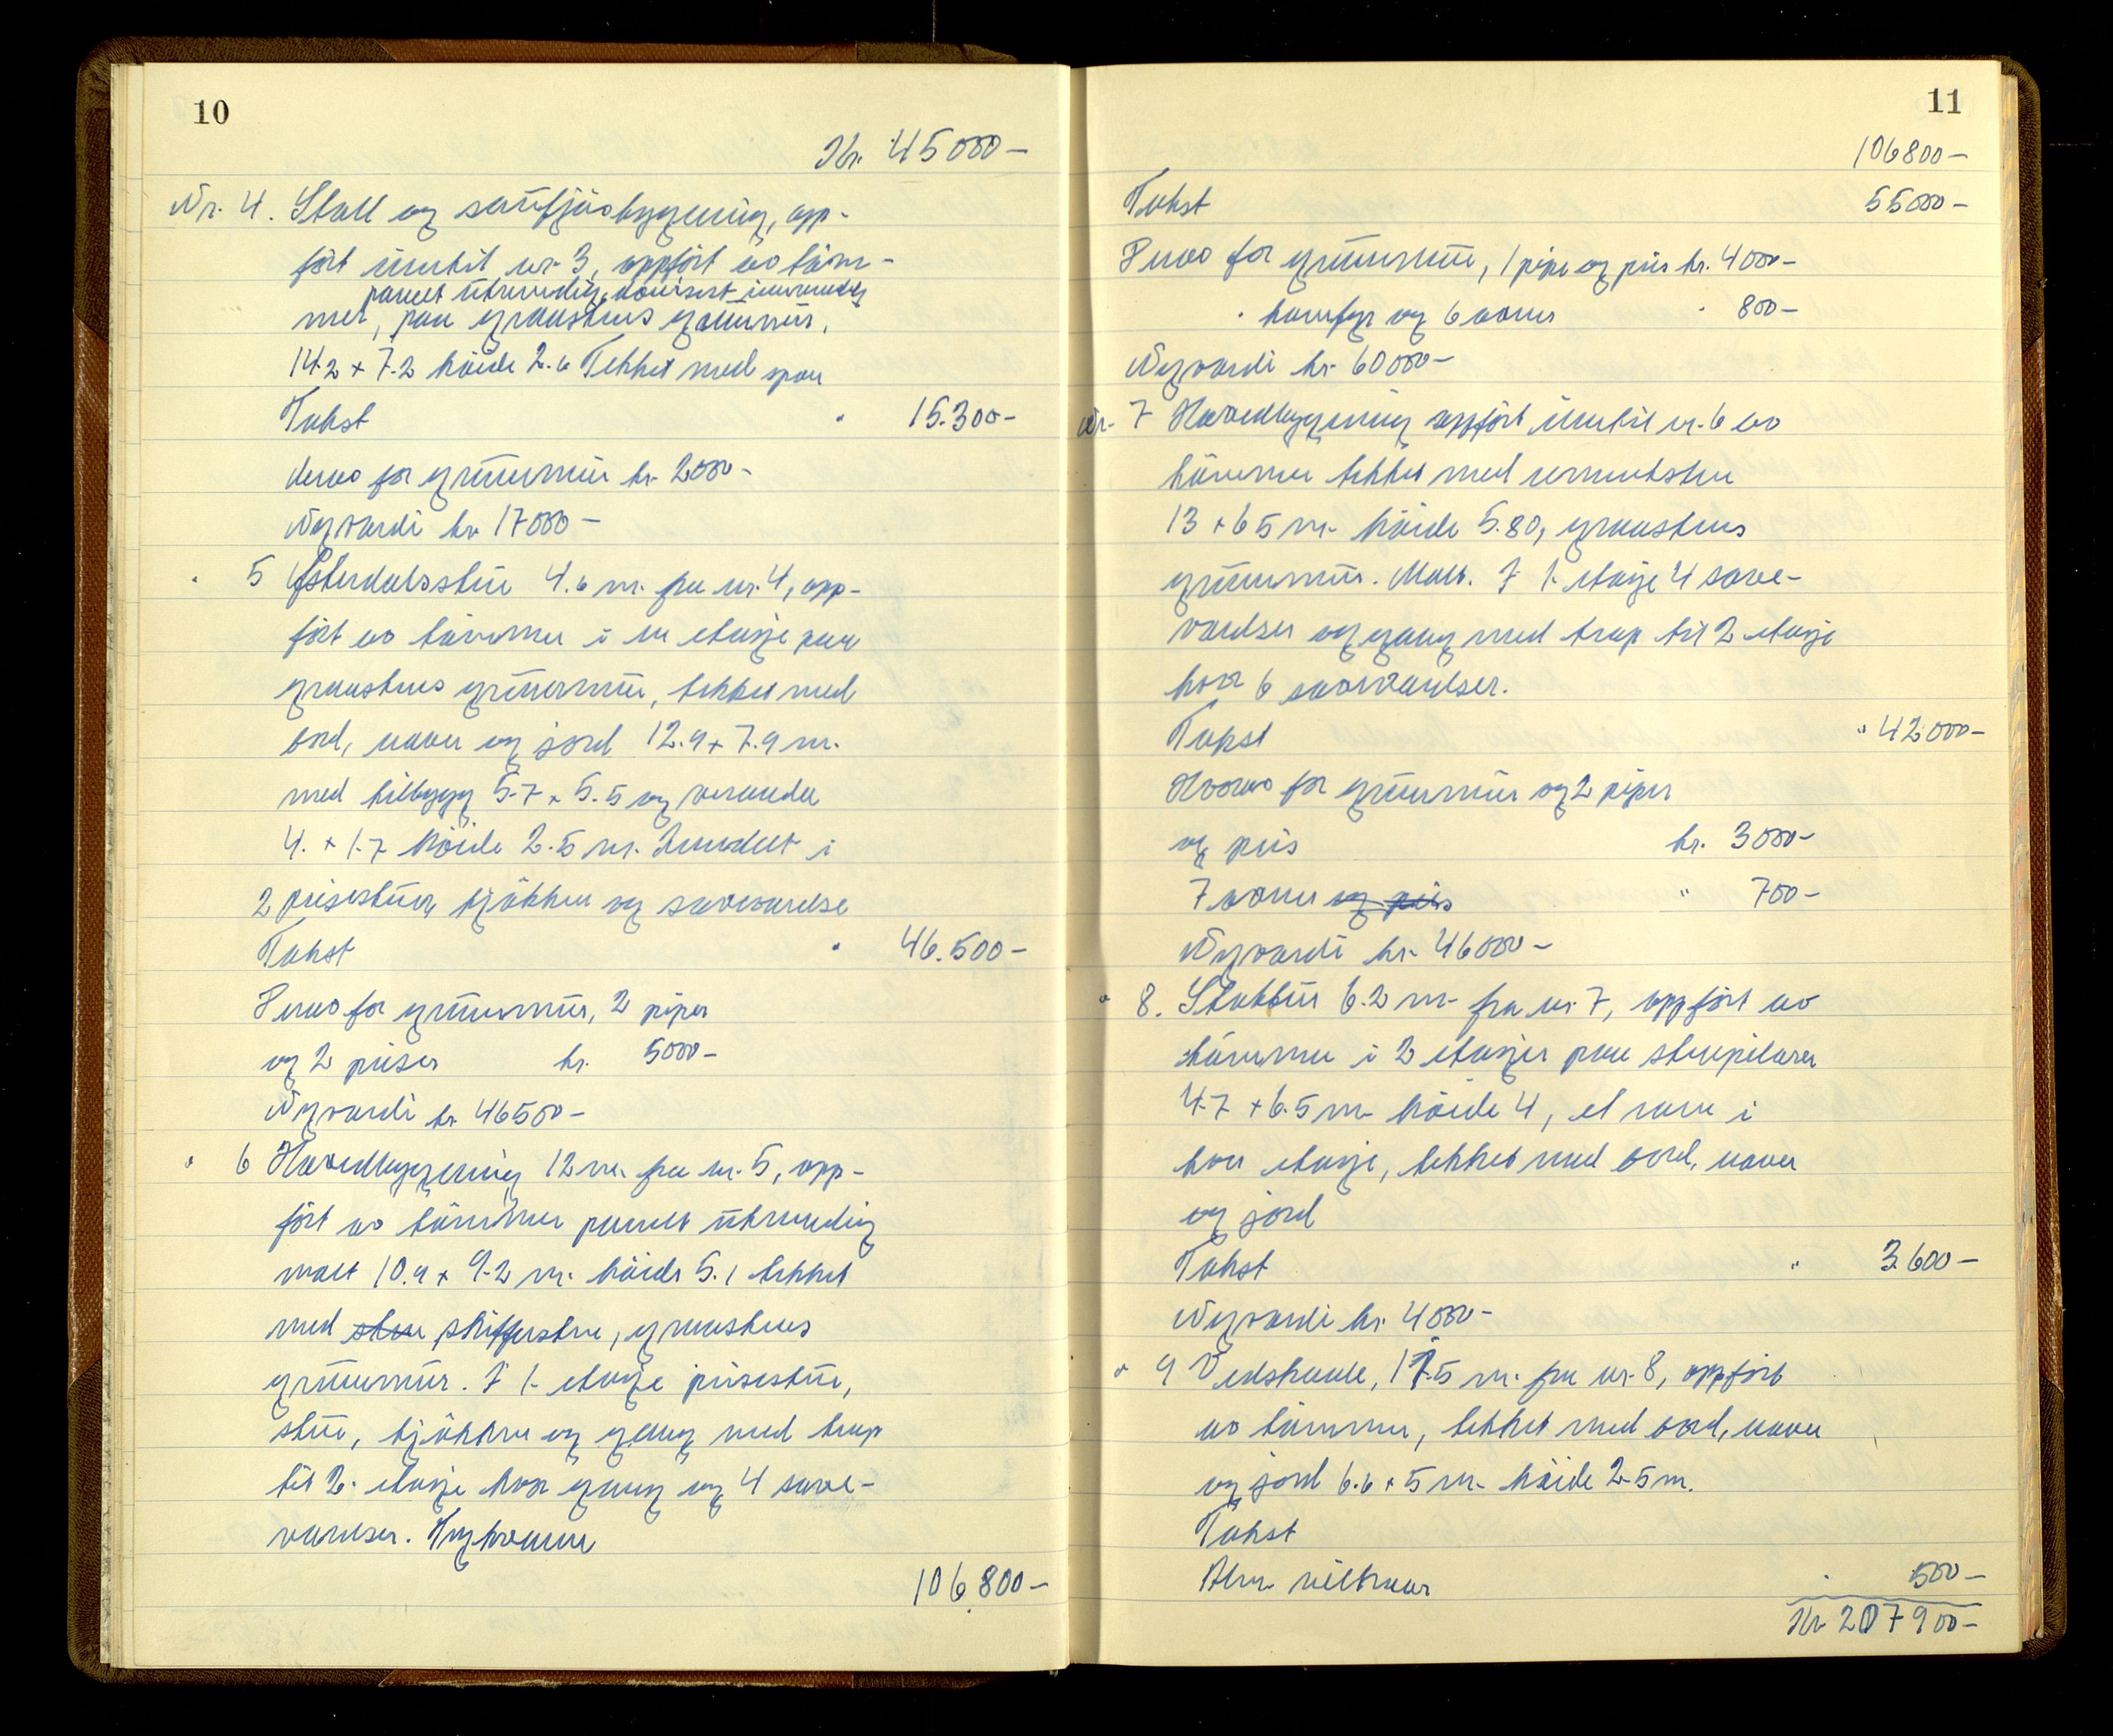 10
Kr. 45000-
Nr. 4. Stall og saufjøsbygning, opp-
ført inntil nr. 3, oppført av tøm-
panelt utvendig, innvendig
mer, paa graastens grunnmur,
14.2 x 7.2 høide 2.6 Tekket med spon
Takst " 15.300-
Herav for grunnmur kr. 2000-
Nyverdi kr. 17000-
" 5 Østerdalsstue 4.6 m. fra nr. 4, opp-
ført av tømmer i en etasje paa
graastens grunnmur, tekket med
bord, never og jord 12.9 x 7.9 m.
med tilbygg 5.7 x 5.5 og veranda
4. x 1.7 høide 2.5 m. Inndelt i
2 peisestuer, kjøkken og soveværelse
Takst " 46.500-
Herav for grunnmur, 2 piper
og 2 peiser kr. 5000-
Nyverdi kr. 46500-
" 6 Hovedbygning 12 m. fra nr. 5, opp-
ført av tømmer panelt utvendig
malt 10.9 x 9.2 m. høide 5.1 tekket
med sten skifferstein, graastens
grunnmur. I 1. etasje peisestue,
stue, kjøkken og gang med trap
til 2. etasje hvor gang og 4 sove-
værelser.
106.800-
11
106800-
Takst 55000-
Herav for grunnmur, 1 pipe og peis kr. 4000-
" komfyr og 6 ovner " 800-
Nyverdi kr. 60000-
Nr. 7 Hovedbygning oppført inntil nr. 6 av
tømmer tekket med sementsten
13 x 6 5 m. høide 5.80, graastens
grunnmur. Malt. I 1. etasje 4 sove-
værelser og gang med trap til 2 etasje
hvor 6 soveværelser.
Takst " 42000-
Hvorav for grunnmur og 2 piper
og peis kr. 3000-
7 ovner og peis " 700-
Nyverdi kr. 46000-
" 8. Stabbur 6.2 m. fra nr. 7, oppført av
tømmer i 2 etasjer paa stenpilarer
4.7 x 6.5 m. høide 4, et rom i
hver etasje, tekket med bord, never
og jord
Takst " 3.600-
Nyverdi kr. 4000-
" 9 Vedskaale, 17.5 m. fra nr. 8, oppført
av tømmer, tekket med bord, never
og jord 6.6 x 5 m. høide 2.5 m.
Takst
Alm. vilkaar " 500-
Kr. 207900-